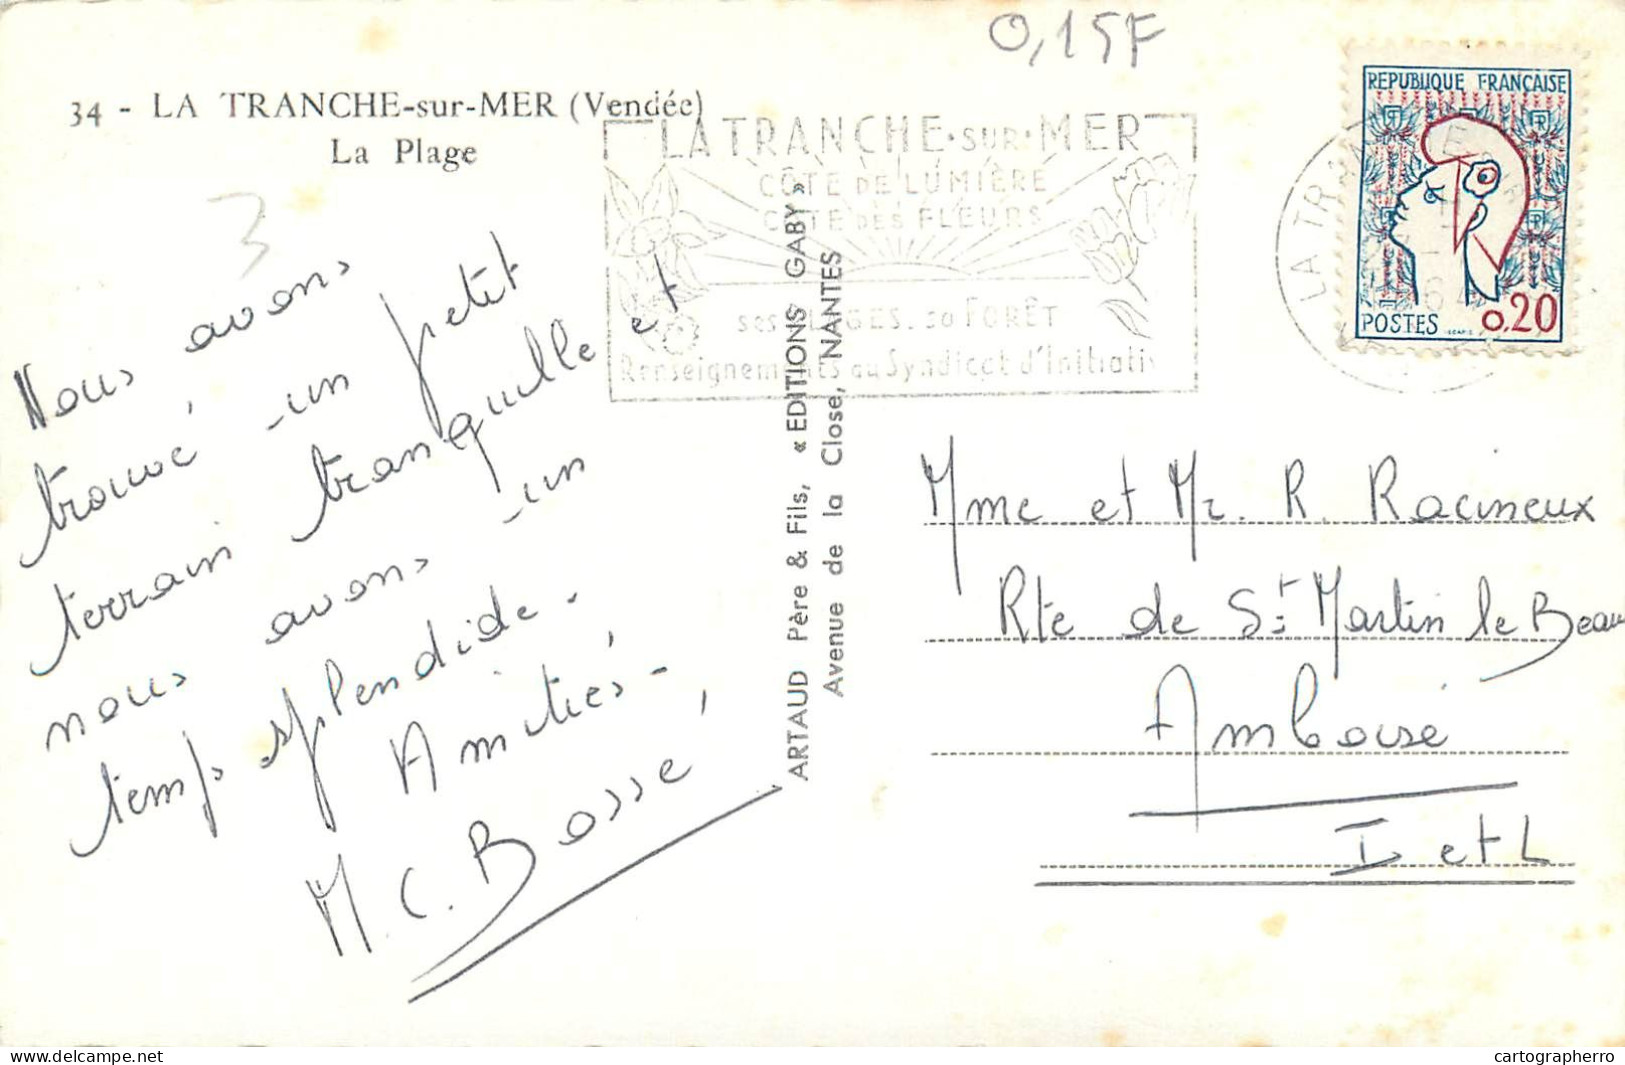 0,15F
34 - LA TRANCHE-sur-MER (Vendée)
La Plage
3
LA TRANCHE·SUR·MER
CÔTE DE LUMIÈRE
CÔTE DES FLEURS
SES PLAGES. SA FORÊT
Renseignements au Syndicat d'Initiativ
LA TRAN
REPUBLIQUE FRANÇAISE
POSTES 0,20
Nous avons
trouvé un petit
terrain tranquille et
nous avons un
temps splendide.
Amitiés.
M. C. Bosse,
ARTAUD Père & Fils, « EDITIONS GABY »
Avenue de la Close, NANTES
Mme et Mr. R. Racineux
Rte de St Martin le Beau
Amboise
I et L
delcampe.net
cartographerro